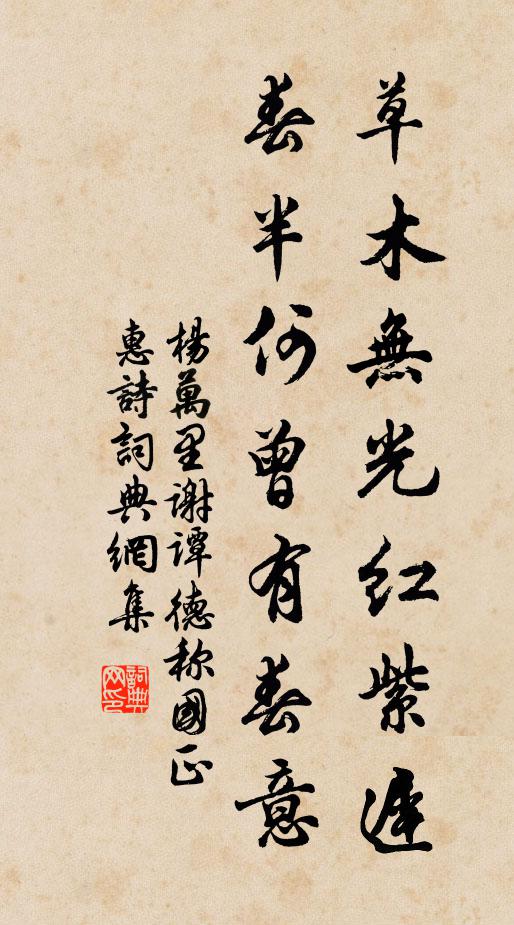 草木無光紅紫遲
春半何曾有春意
楊萬里謝譚德称國正
惠詩詞典網集
詞典網印